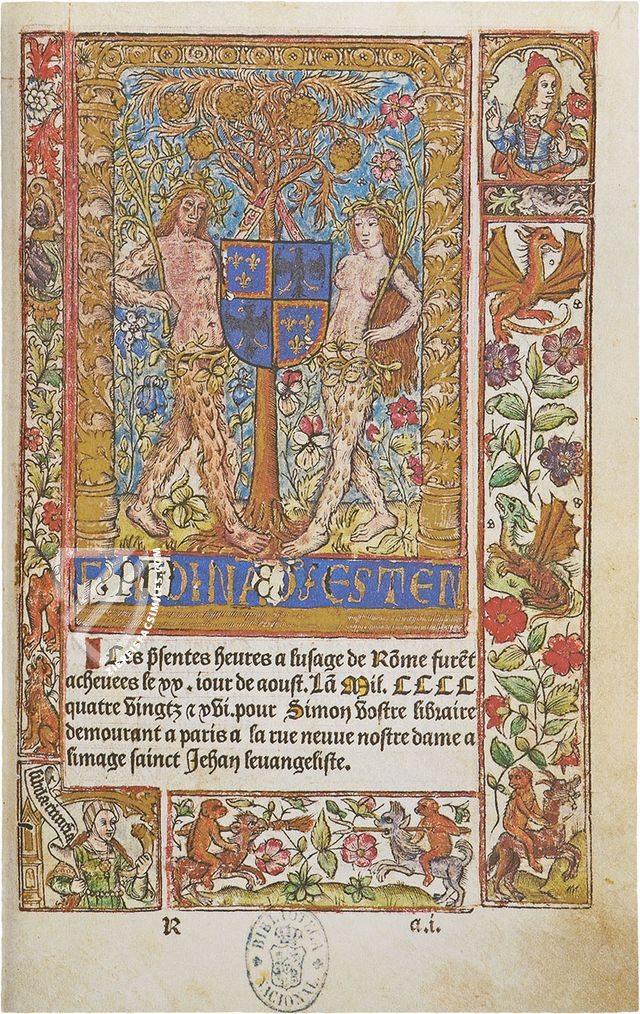 FERDINADVS ESTEN
Les p̃sentes heures a lusage de Rõme furẽt
acheuees le xx. iour de aoust. Lã Mil. CCCC
quatre vingtz ⁊ xvi. pour Simon Vostre libraire
demourant a paris a la rue neuue nostre dame a
limage sainct Jehan leuangeliste.
R
a.i.
BIBLIOTECA
NACIONAL